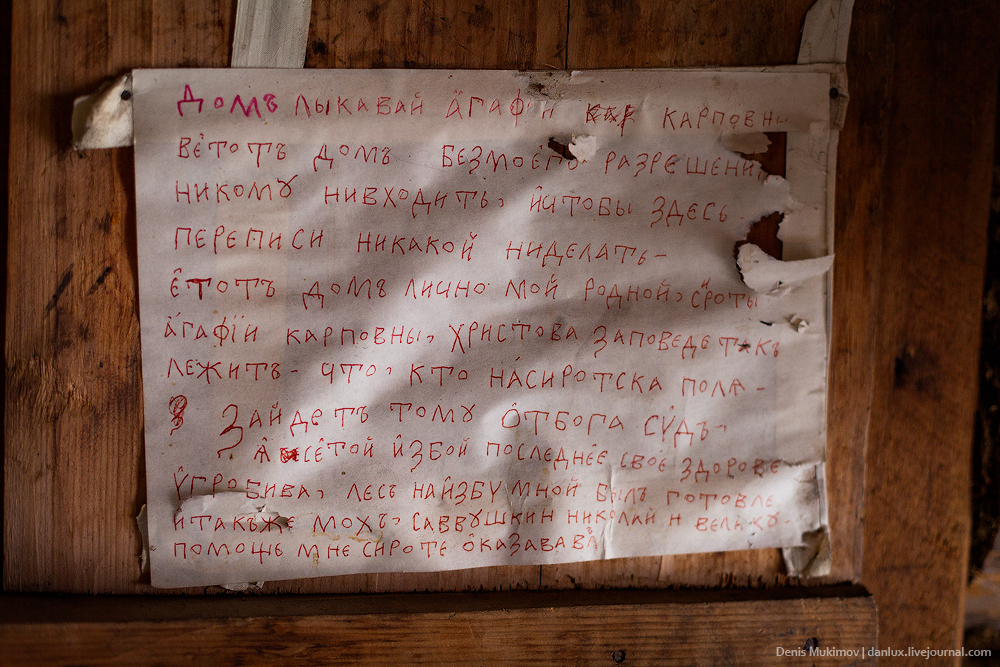 ДОМЪ ЛЫКАВАЙ А҆ГАФЇИ КАРПОВНЫ
ВЕ҆ТОТЪ ДОМЪ БЕЗМОЕ҆ГО РАЗРЕШЕНИ
НИКОМꙊ НИВХОДИТЬ, И҆ЧТОБЫ ЗДЕСЬ
ПЕРЕПИСИ НИКАКОЙ НИДЕЛАТЬ-
Е҆ТОТЪ ДОМЪ ЛИЧНО МОЙ РОДНОЙ, СИРОТЫ
А҆ГАФЇИ КАРПОВНЫ, ХРИСТОВА ЗАПОВЕДЕ ТАКЪ
ЛЕЖИТЪ- ЧТО, КТО НАСИРОТСКА ПОЛѦ-
ЗАЙДЕТЪ ТОМꙊ О҆ТБОГА СУДЪ-
Ѧ҆ СЕ҆ТОЙ И҆ЗБОЙ ПОСЛЕДНЕЕ СВОЕ ЗДОРОВЕ
УГРОБИВА, ЛЕСЪ НАИ҆ЗБУ МНОЙ БЫЛЪ ГОТОВЛЕ
ИТАКЪЖЕ МОХЪ, САВВꙊШКИН НИКОЛАЙ Н ВЕЛИКУ-
ПОМОЩЕ МНЕ СИРОТЕ О҆КАЗАВАВ
Denis Mukimov | danlux.livejournal.com